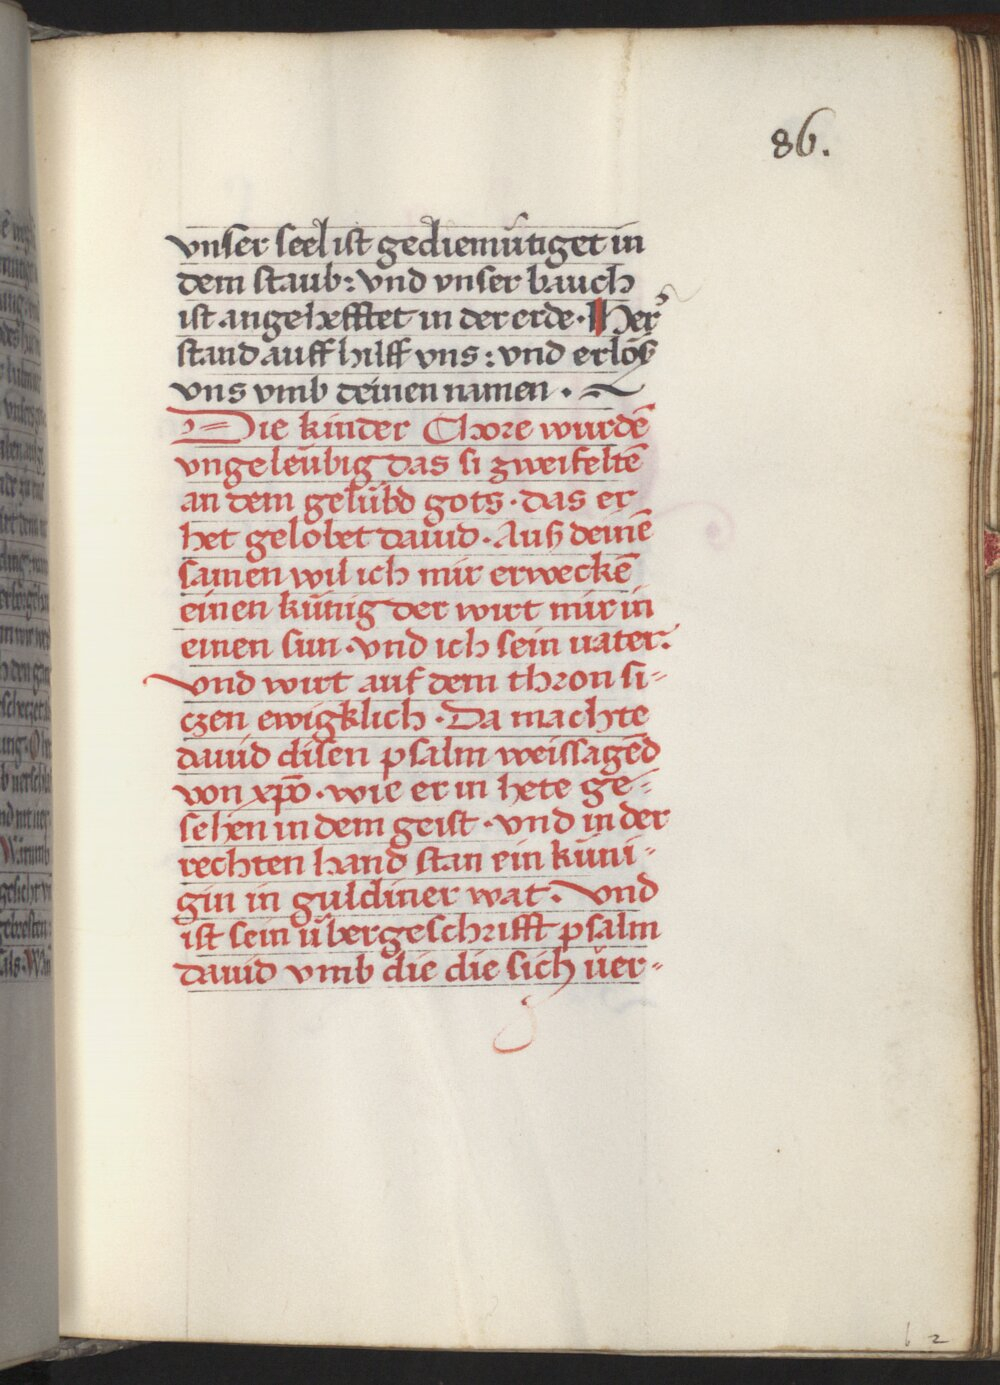 86.
vnser seel ist gediemütiget in
dem staub: vnd vnser bauch
ist angehefftet in der erde · Her
stand auff hilff vns : vnd erlöß
vns vmb deinen namen ·
Die kinder Chore wurdē
vngeleübig das si zweifeltē
an dem gelübd gots · das er
het gelobet dauid · Auß deinē
samen wil ich mir erweckē
einen künig der wirt mir in
einen sun · vnd ich sein uater ·
vnd wirt auf dem thron si-
czen ewigklich · Da machte
dauid disen psalm weissagēd
von xp̄o · wie er in hete ge-
sehen in dem geist · vnd in der
rechten hand stan ein küni-
gin in guldiner wat · Vnd
ist sein übergeschrifft psalm
dauid vmb die die sich üer-
b 2